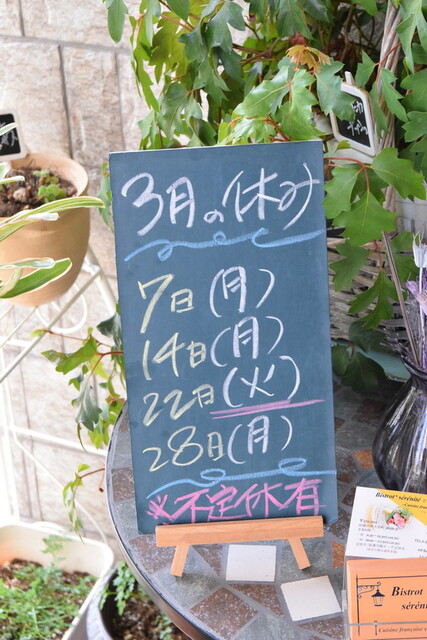 3月の(休み)
7日(月)
14日(月)
22日(火)
28日(月)
※不定休有
Bistrot sérénité
Bistrot
séréni